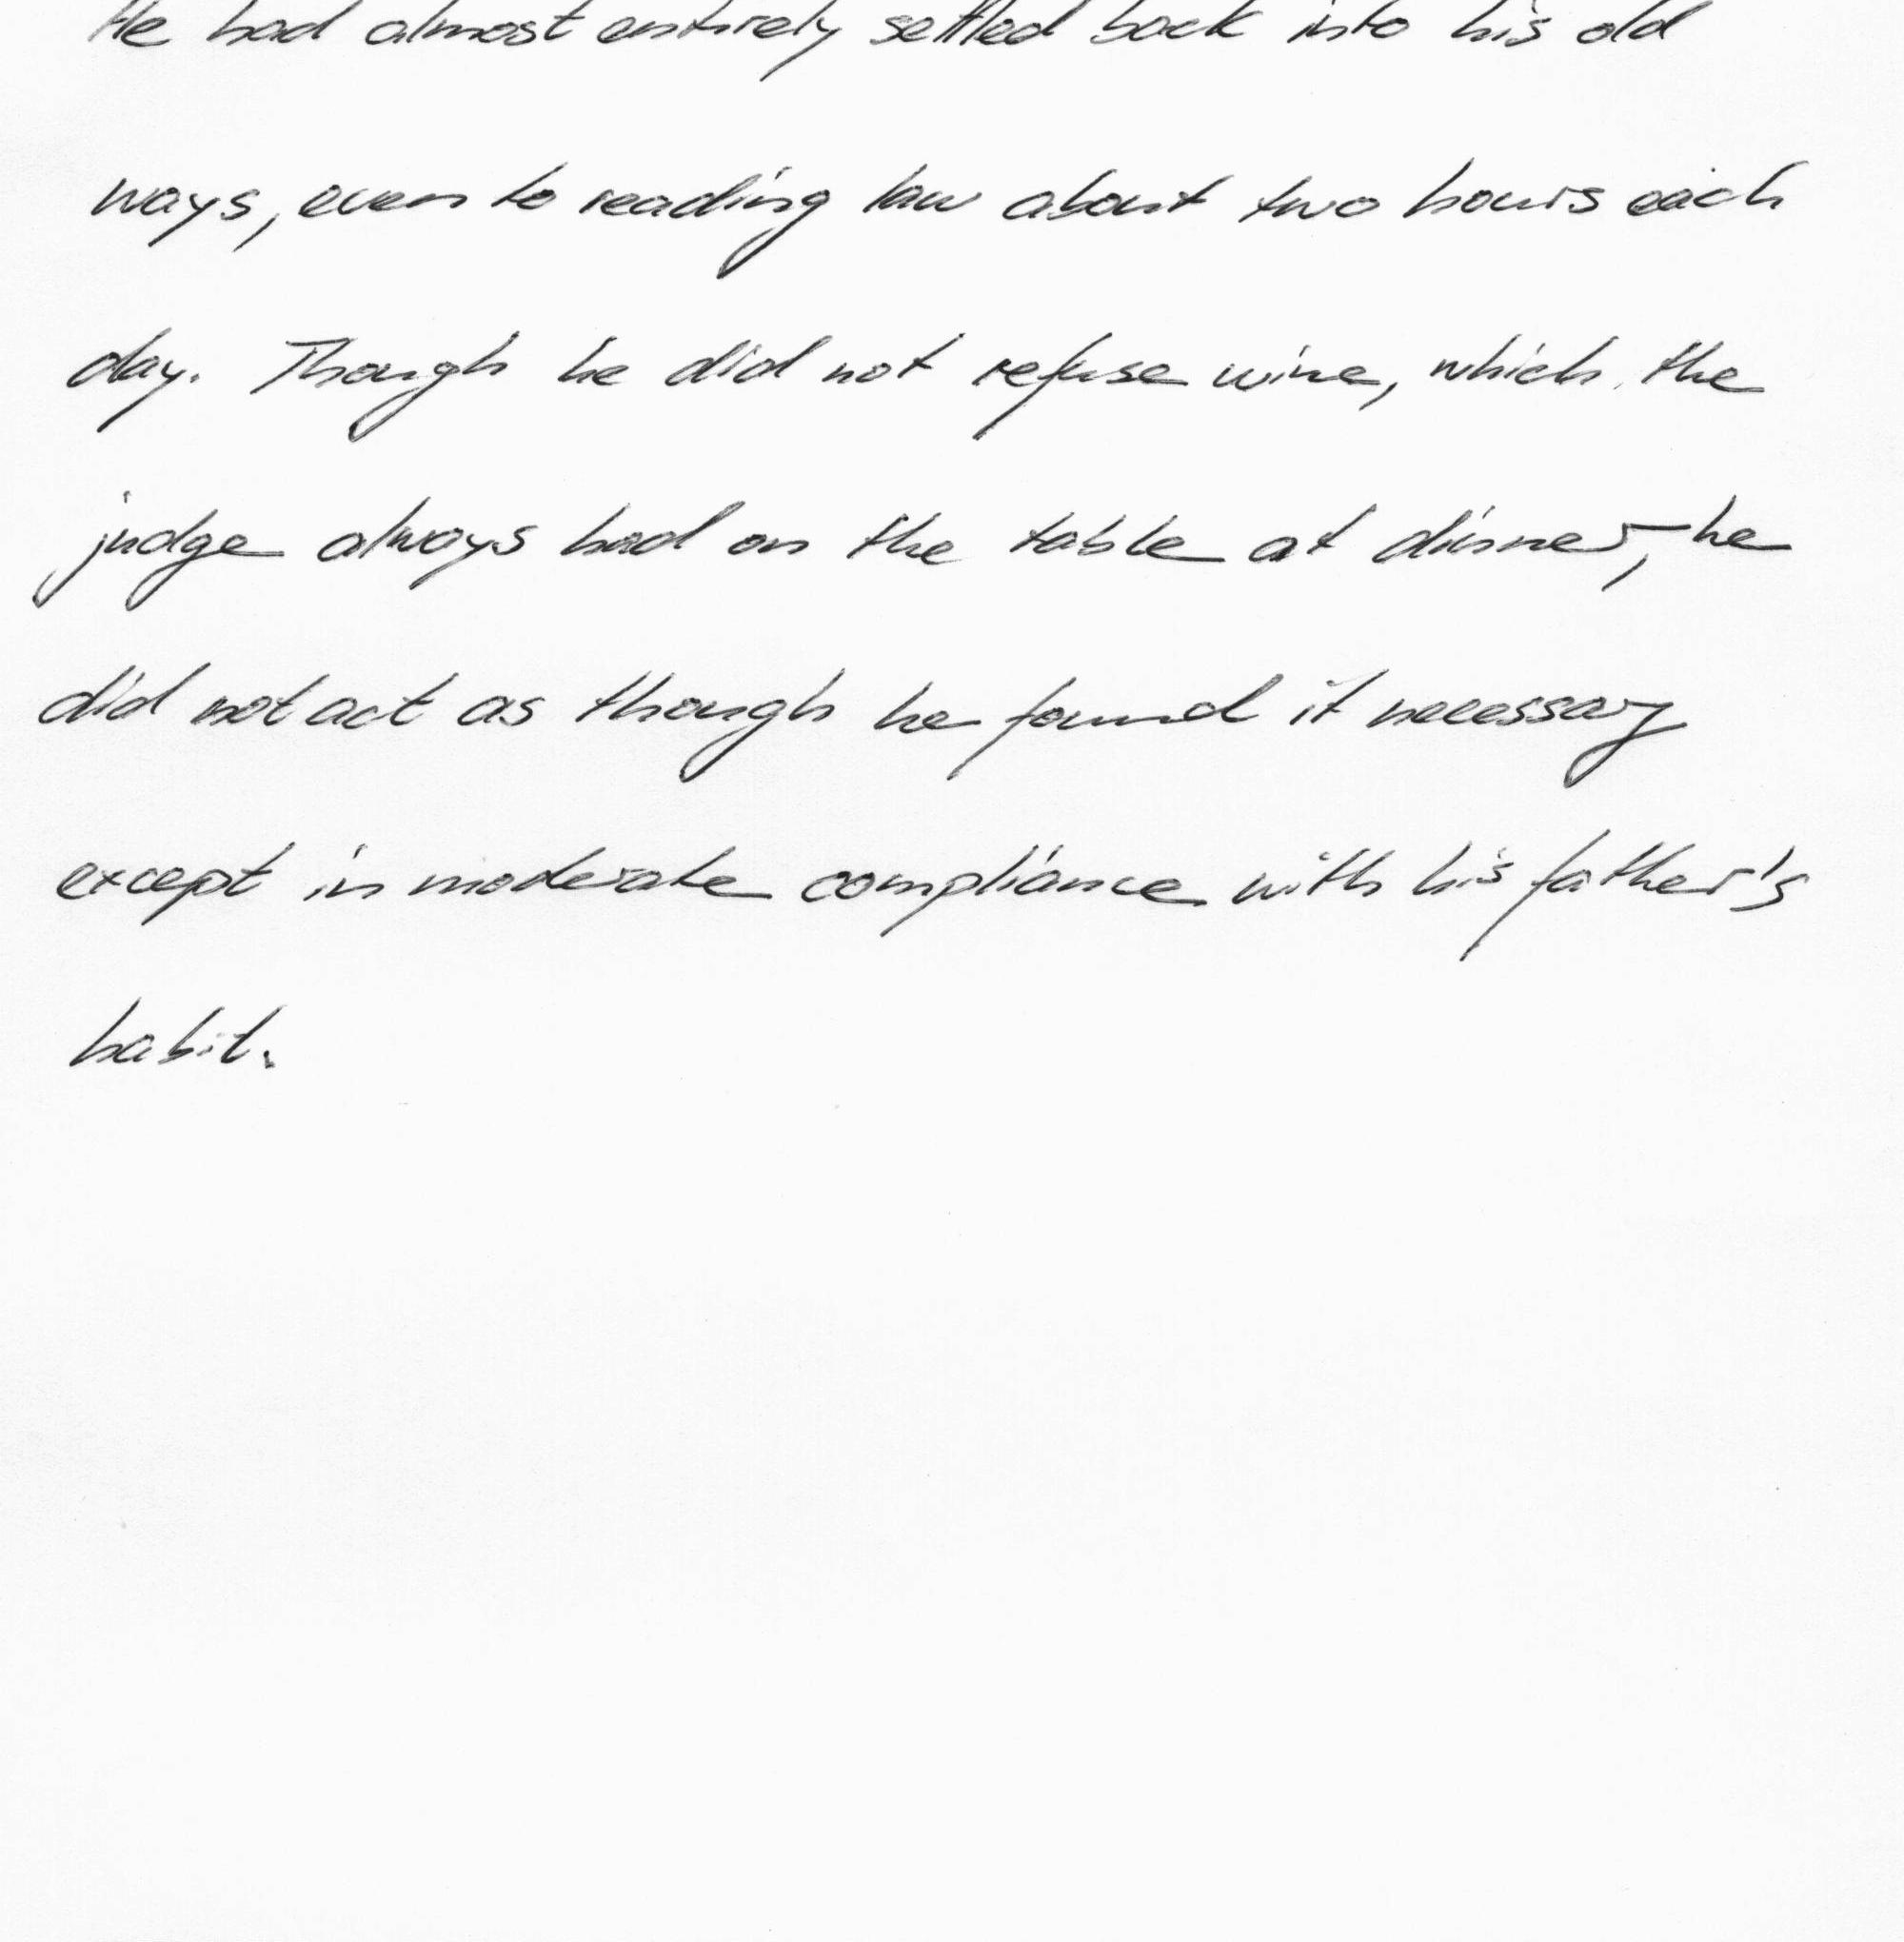 He had almost entirely settled back into his old
ways, even to reading law about two hours each
day. Though he did not refuse wine, which the
judge always had on the table at dinner, he
did not act as though he found it necessary
except in moderate compliance with his father's
habit.